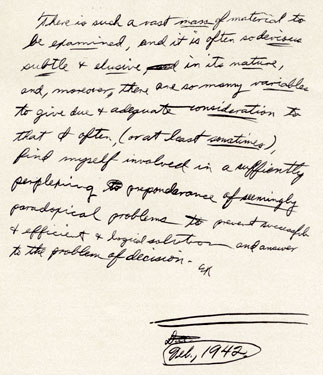 There is such a vast mass of material to
be examined, and it is often so devious
subtle & elusive, and in its nature,
and, moreover, there are so many variables
to give due & adequate consideration to
that I often, (or at least sometimes),
find myself involved in a sufficiently
perplexing to preponderance of seemingly
paradoxical problems to prevent successful
& efficient & logical solution and answer
to the problem of decision -
Feb., 1942.